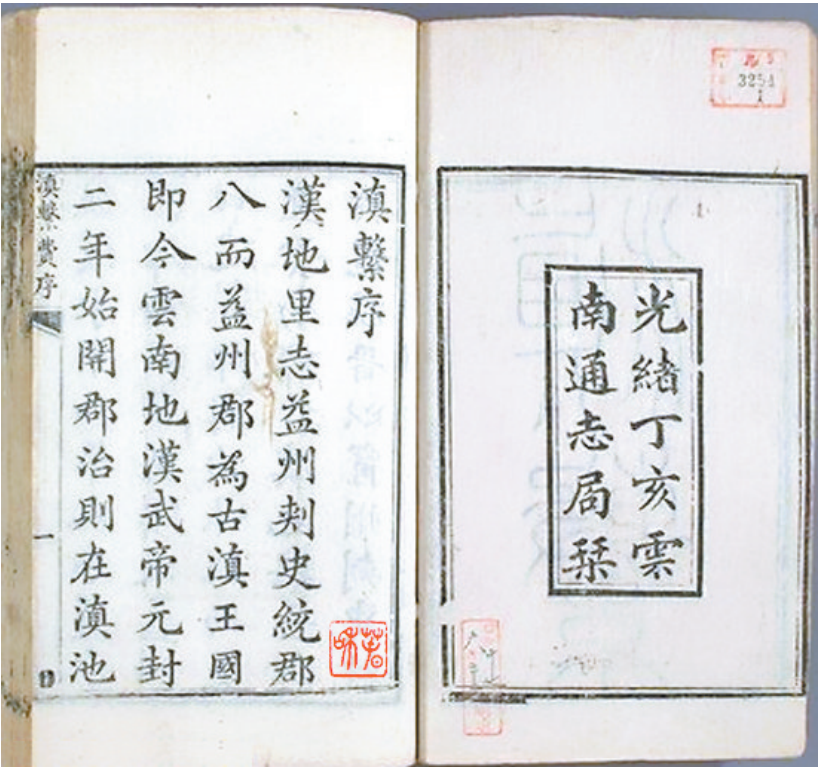 光緒丁亥雲
南通志局栞
3254
1
滇繫序
漢地里志益州刾史統郡
八而益州郡為古滇王國
即今雲南地漢武帝元封
二年始開郡治則在滇池
滇繫費序
一